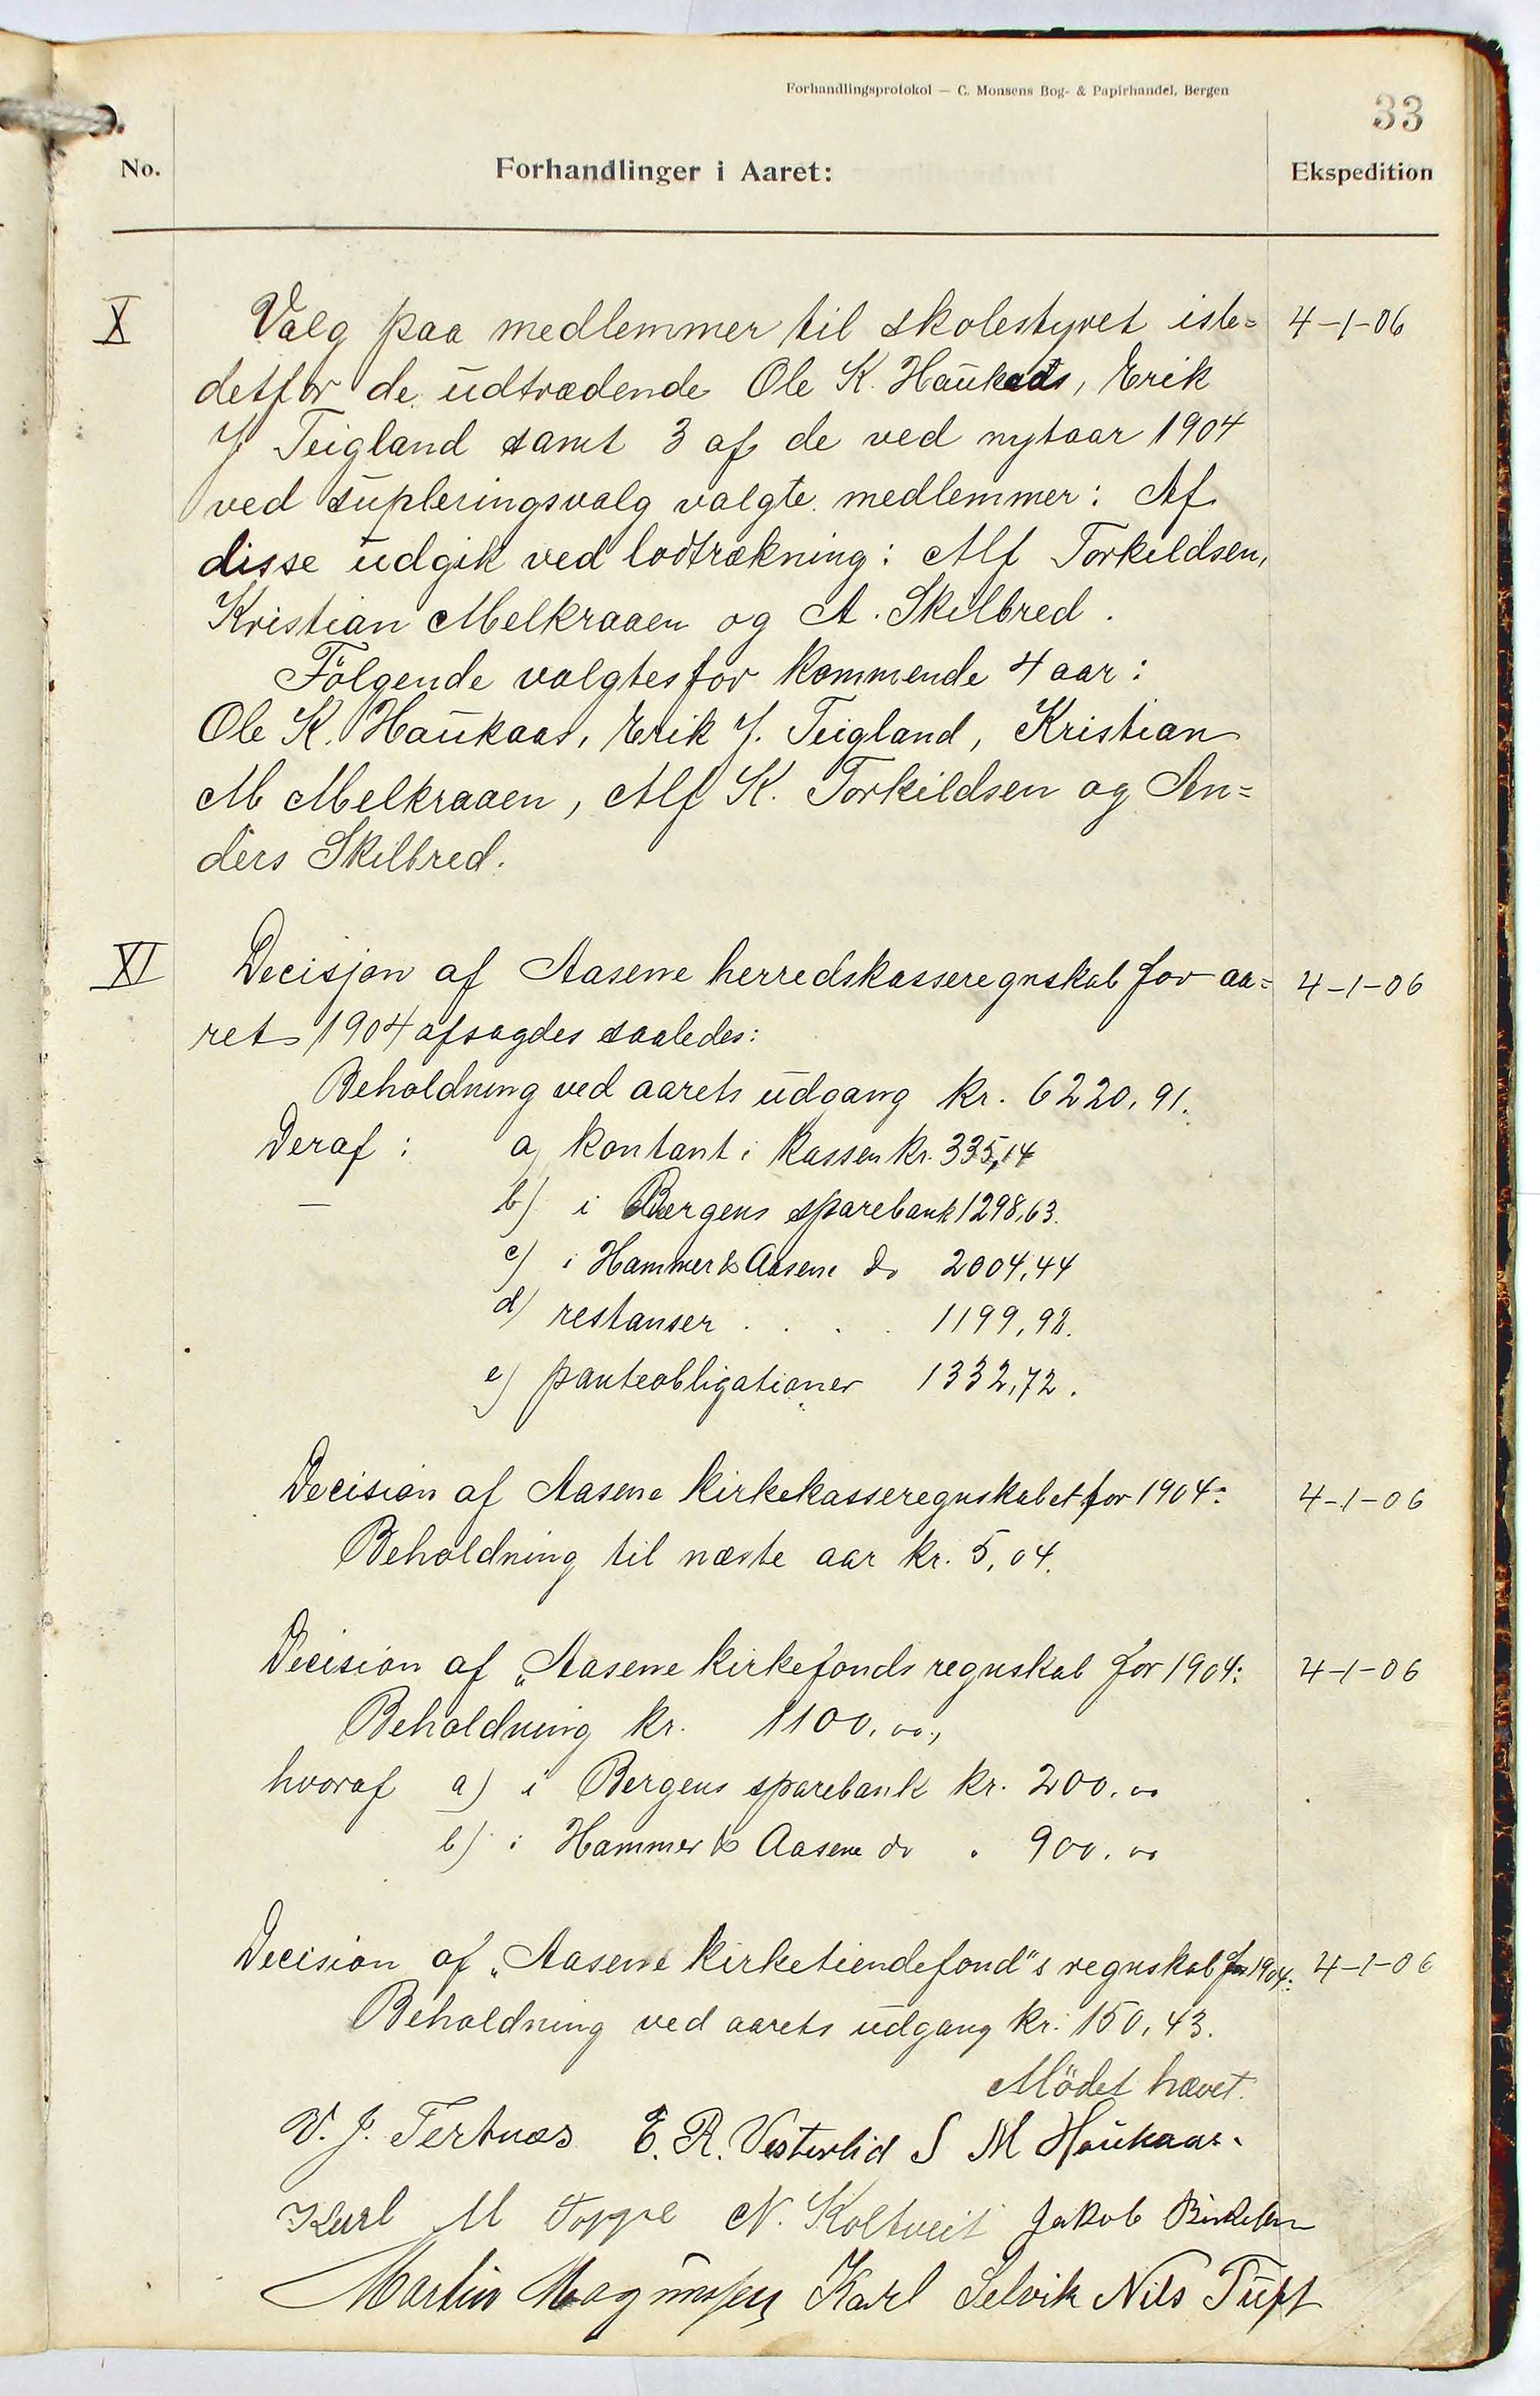 Forhandlingsprotokol — C. Monsens Bog- & Papirhandel, Bergen
33
No. Forhandlinger i Aaret: Ekspedition
X Valg paa medlemmer til skolestyret iste= 4-1-06
detfor de udtrædende Ole K. Haukaas, Erik
J Teigland samt 3 af de ved nytaar 1904
ved supleringsvalg valgte medlemmer: Af
disse udgik ved lodtrækning: Alf Torkildsen,
Kristian Melkraaen og A. Skilbred.
Følgende valgtes for kommende 4 aar:
Ole K. Haukaas, Erik J. Teigland, Kristian
M Melkraaen, Alf K. Torkildsen og An=
ders Skilbred.
XI Decisjon af Aasene herredskasseregnskab for aa= 4-1-06
ret 1904 afsagdes saaledes:
Beholdning ved aarets udgang kr. 6220,91.
Deraf: a, kontant i kassen kr. 335,14
— b) i Bergens sparebank 1298,63.
c) i Hammer & Aasene do 2004,44
d) restanser . . . . 1199,98.
e) panteobligationer 1332,72.
Decision af Aasene kirkekasseregnskabet for 1904: 4-1-06
Beholdning til næste aar kr. 5,04.
Decision af „Aasene kirkefonds regnskab for 1904: 4-1-06
Beholdning kr. 1100,00,
hvoraf a) i Bergens sparebank kr. 200.00
b) i Hammer & Aasene do " 900.00
Decision af „Aasene kirketiendefond"s regnskab for 1904: 4-1-06
Beholdning ved aarets udgang kr. 150,43.
Mödet hævet.
V. J. Tertnæs E. R. Vesterlid S M Haukaas.
Karl M Toppe N. Koltveit Jakob
Martin Magnussen Karl Selvik Nils Tuft